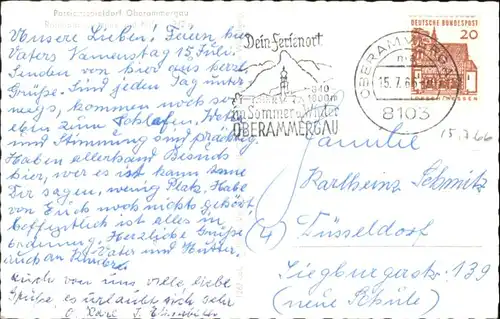 Passionsspieldorf Oberammergau
Unsere Lieben! Feiern hier
Vaters Namenstag 15. Juli.
Senden von hier aus herzl.
Grüße. Sind jeden Tag unter-
wegs, kommen noch
eben zum Schlafen.
und Stimmung sind prächtig.
Haben allerhand Besuch
hier, wer es ist kann
Dir sagen, wenig Platz. Habe
von Euch noch nichts gehört
Hoffentlich ist alles in
Ordnung. Herzliche Grüße
Vater und Mutter,
auch an
Auch von uns viele liebe
Grüße, es urlaubt sich sehr
Karl
Dein Ferienort
840
1800m
im Sommer u. Winter
OBERAMMERGAU
OBERAMMERGAU
15.7.66
8103
DEUTSCHE BUNDESPOST
20
LORSCH/HESSEN
15.7.66
Familie
Karlheinz Schmitz
(4) Düsseldorf
Siegburgerstr. 139
(neue Schule)